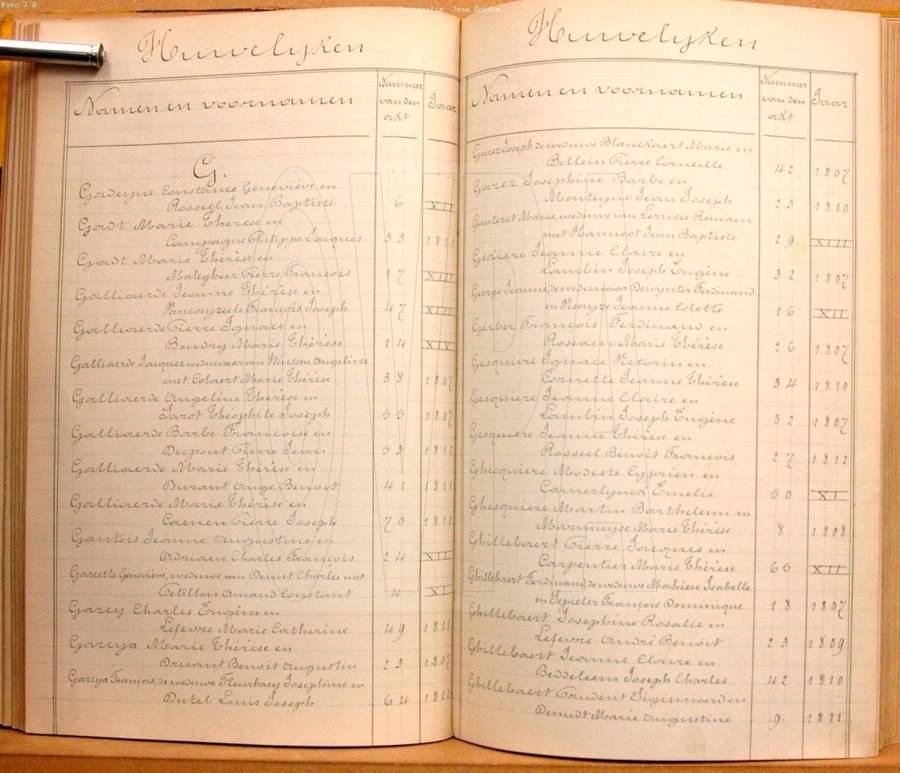 Foto J B
Huwelyken
Namen en voornamen
Nummer van den akt
Jaar
G.
Gadeyne Constance Geneviève en
Rosseel Jean Baptiste 6 XII
Gadt Marie Thérèse en
Campagne Philippe Jacques 33 1812
Gadt Marie Thérèse en
Mategheer Pierre François 17 XIII
Galliaerde Jeanne Thérèse en
François Joseph 47 XIII
Galliaerde Pierre Ignace en
Boudry Marie Thérèse 14 XIV
Galliaerde Jacques weduwaar van Angeline
met Colaert Marie Thérèse 38 1807
Galliaerde Angeline Thérèse en
Jarot Théophile Joseph 55 1807
Galliaerde Barbe Françoise en
Dupont Pierre Jean 53 1812
Galliaerde Marie Thérèse en
Durant Ange Benoit 41 1811
Galliaerde Marie Thérèse en
Caenen Pierre Joseph 70 1812
Gantois Jeanne Augustine en
Adriaen Charles François 24 XII
Geneviève, weduwe van Charles met
Petillon Amand Constant 4 XI
Garcy Charles Eugène en
Lefevre Marie Catherine 49 1811
Garcya Marie Thérèse en
Druant Benoit Augustin 23 1807
Garcya François, de weduwe Fleurbaey Josephine en
Dutel Louis Joseph 64 1812
Huwelyken
Namen en voornamen
Nummer van den akt
Jaar
Garez Joseph de weduwe Blanckaert Marie en
Bellein Pierre Corneille 42 1807
Garez Joséphine Barbe en
Monteyne Jean Joseph 23 1810
Marie, weduwe van Romain
met Jean Baptiste 29 XIII
Jeanne Claire en
Lambin Joseph Eugène 32 1807
George Jeanne, de weduwaar Dewynter Ferdinand
en Jeanne Colette 16 XII
Gerber François Ferdinand en
Marie Thérèse 26 1807
Gesquiere Ignace Victorin en
Cornette Jeanne Thérèse 34 1810
Gesquiere Jeanne Claire en
Lambin Joseph Eugène 32 1807
Gesquiere Jeanne Thérèse en
Rosseel Benoit François 27 1812
Ghesquiere Modeste Cyprien en
Camerlynck Emelie 50 XI
Ghesquiere Martin Barthelemi en
Marie Thérèse 8 1808
Ghillebaert Pierre Jacques en
Carpentier Marie Thérèse 65 XII
Ghillebaert Ferdinand, de weduwe Mathieu Isabelle
en François Dominique 18 1807
Ghillebaert Josephine Rosalie en
Lefevre André Benoit 23 1809
Ghillebaert Jeanne Claire en
Beddeleem Joseph Charles 42 1810
Ghillebaert Prudent Sigismond en
Denudt Marie Augustine 9 1811